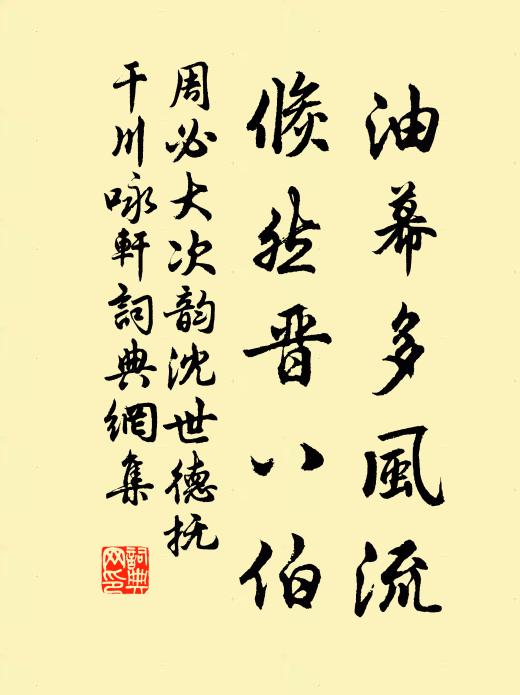 油幕多風流
倐然晋八伯
周必大次韵沈世德抚
干川咏軒詞典網集
詞典
网印